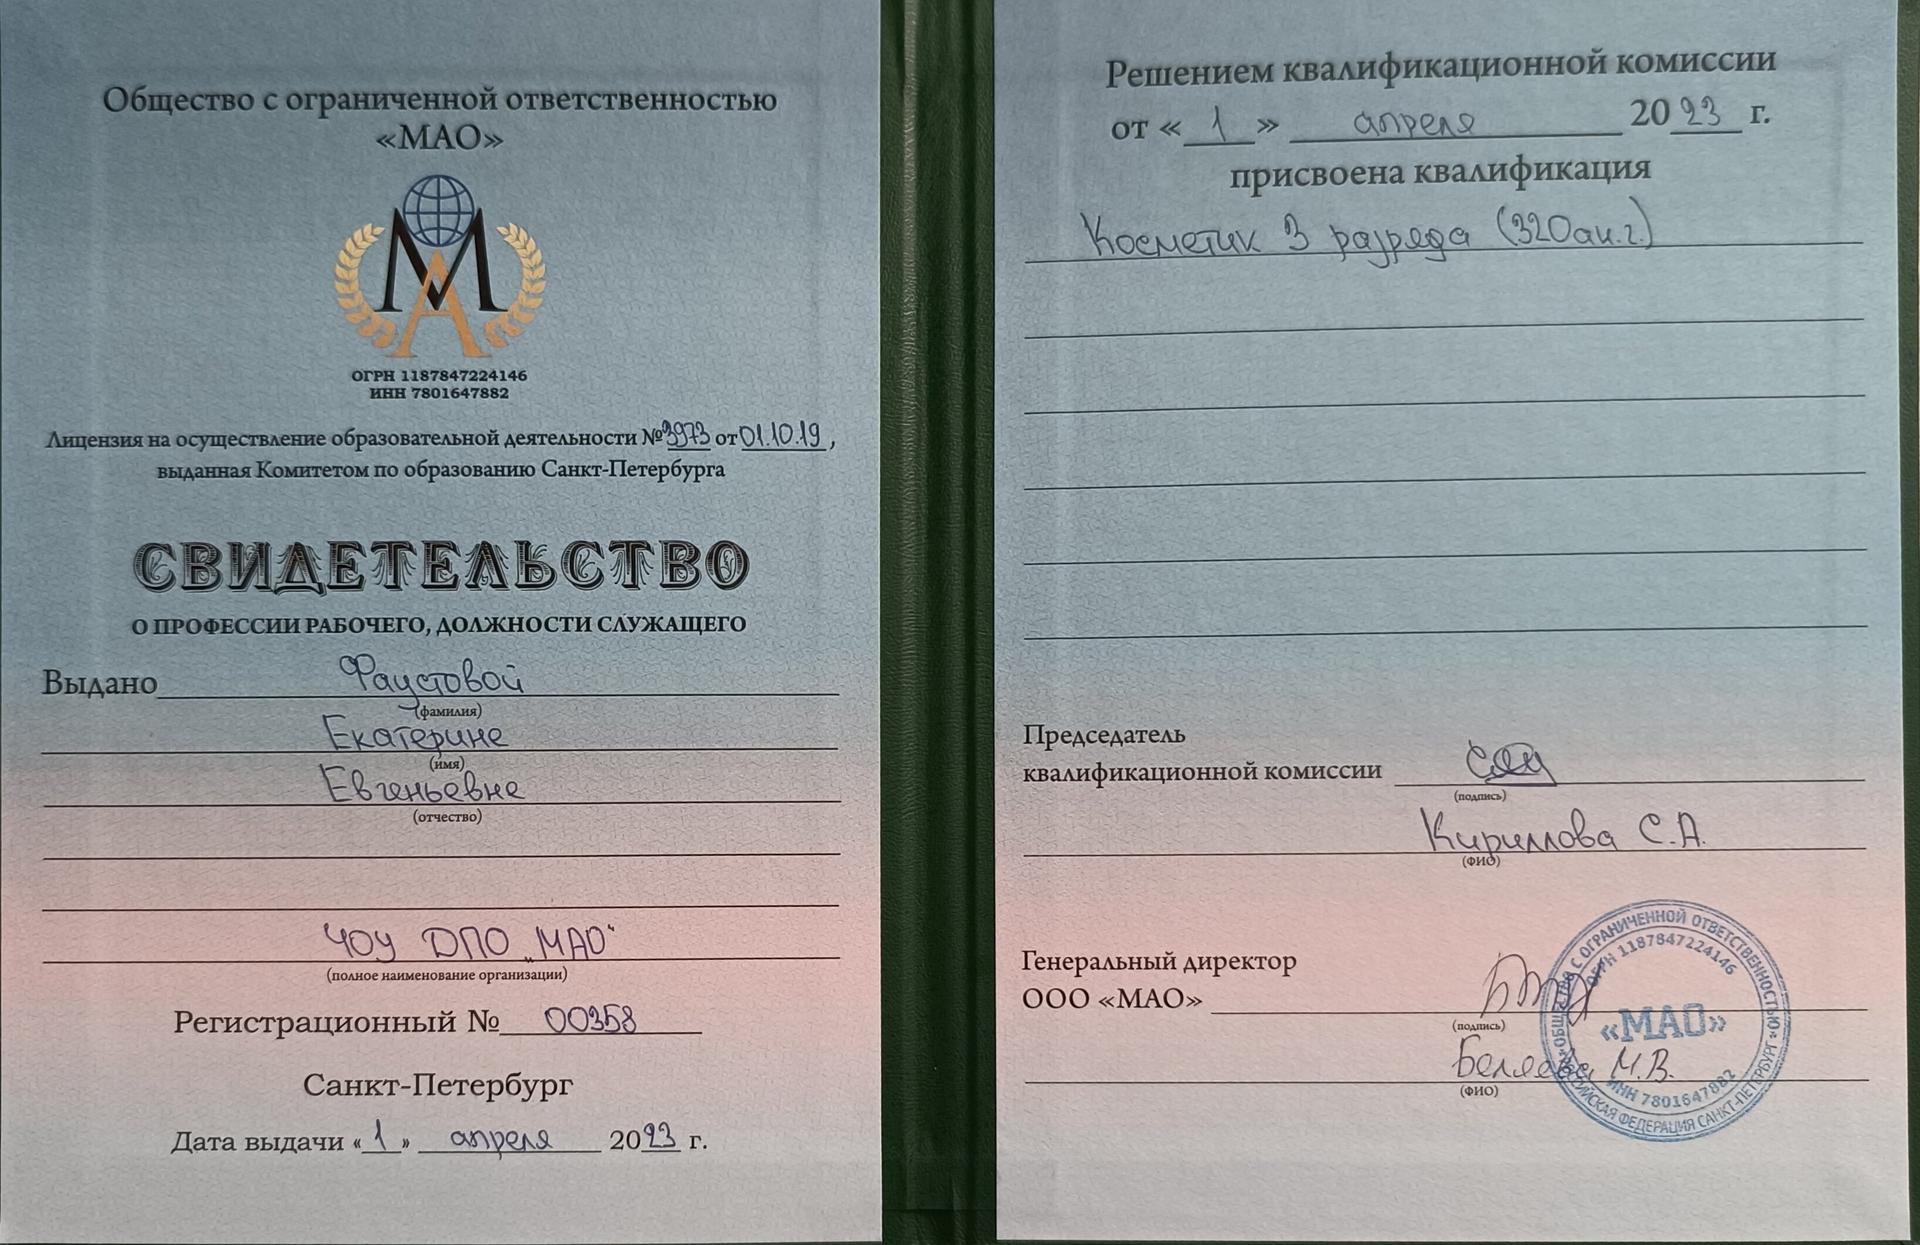 Общество с ограниченной ответственностью
«МАО»
МА
ОГРН 1187847224146
ИНН 7801647882
Лицензия на осуществление образовательной деятельности № 3973 от 01.10.19,
выданная Комитетом по образованию Санкт-Петербурга
СВИДЕТЕЛЬСТВО
О ПРОФЕССИИ РАБОЧЕГО, ДОЛЖНОСТИ СЛУЖАЩЕГО
Выдано Фаустовой
(фамилия)
Екатерине
(имя)
Евгеньевне
(отчество)
ЧОУ ДПО „МАО“
(полное наименование организации)
Регистрационный № 00358
Санкт-Петербург
Дата выдачи «1» апреля 2023 г.
Решением квалификационной комиссии
от «1» апреля 2023 г.
присвоена квалификация
Косметик 3 разряда (320 ак.г.)
Председатель
квалификационной комиссии
(подпись)
Кириллова С.А.
(ФИО)
Генеральный директор
ООО «МАО»
(подпись)
Беляева М.В.
(ФИО)
ОБЩЕСТВО С ОГРАНИЧЕННОЙ ОТВЕТСТВЕННОСТЬЮ
ОГРН 1187847224146
«МАО»
ИНН 7801647882
РОССИЙСКАЯ ФЕДЕРАЦИЯ САНКТ-ПЕТЕРБУРГ